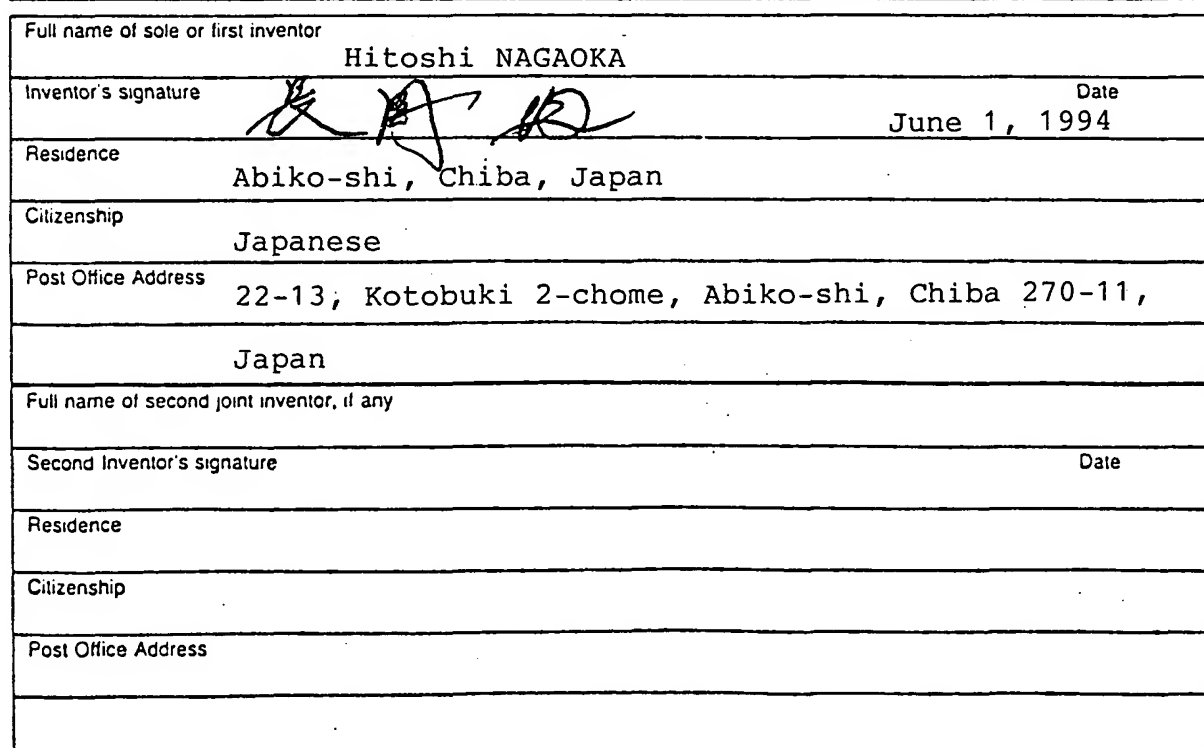 Full name of sole or first inventor
Hitoshi NAGAOKA
Inventor's signature
Date
June 1, 1994
Residence
Abiko-shi, Chiba, Japan
Citizenship
Japanese
Post Office Address
22-13, Kotobuki 2-chome, Abiko-shi, Chiba 270-11,
Japan
Full name of second joint inventor, if any
Second Inventor's signature Date
Residence
Citizenship
Post Office Address